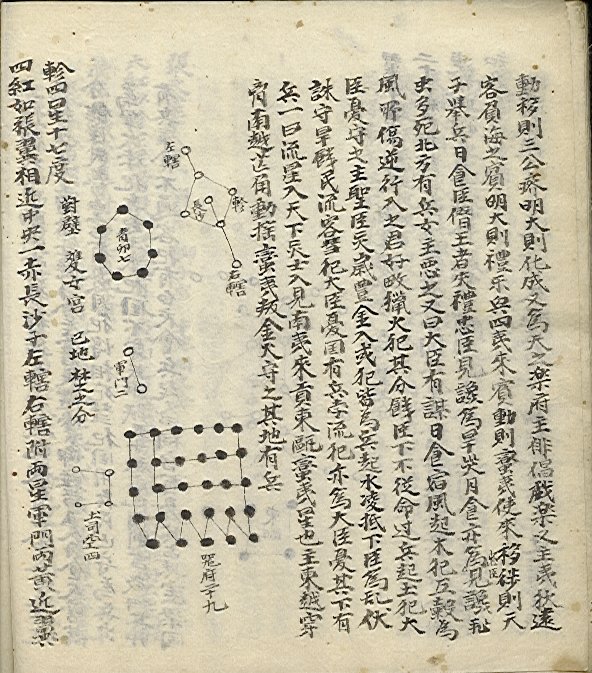 動移則三公明大則化成又為天之樂府主俳倡戲樂又主夷狄遠
容負海之賓明大則禮樂興四夷來賓動則蠻夷使來移徙則天
子舉兵日食臣僭王者失禮忠臣見譖為旱災月食亦為見譖飛
虫多死北方有兵女主惡之又曰大臣有謀日食宿風起木犯五穀為
風所傷逆行入之君好畋獵火犯其分饑臣下不從命過兵起土犯大
臣憂守之主聖臣天歲豊金入或犯皆為兵起水凌抵下臣為乱伏
誅守旱民流客彗犯大臣憂国有兵孛流犯亦為大臣憂其下有
兵一曰流星入天下兵士入見南夷來貢東甌蠻夷星也主東越穿
胷南越芒角動揺蠻夷叛金火守之其地有兵
軫
右轄
長沙
左轄
青丘七
軍門二
器府三十九
土司空四
對壁 雙女宮 巳地 楚之分
軫四星十七度
四紅如張翼相近中央一赤長沙子左轄右轄附兩星軍門兩黄近翼